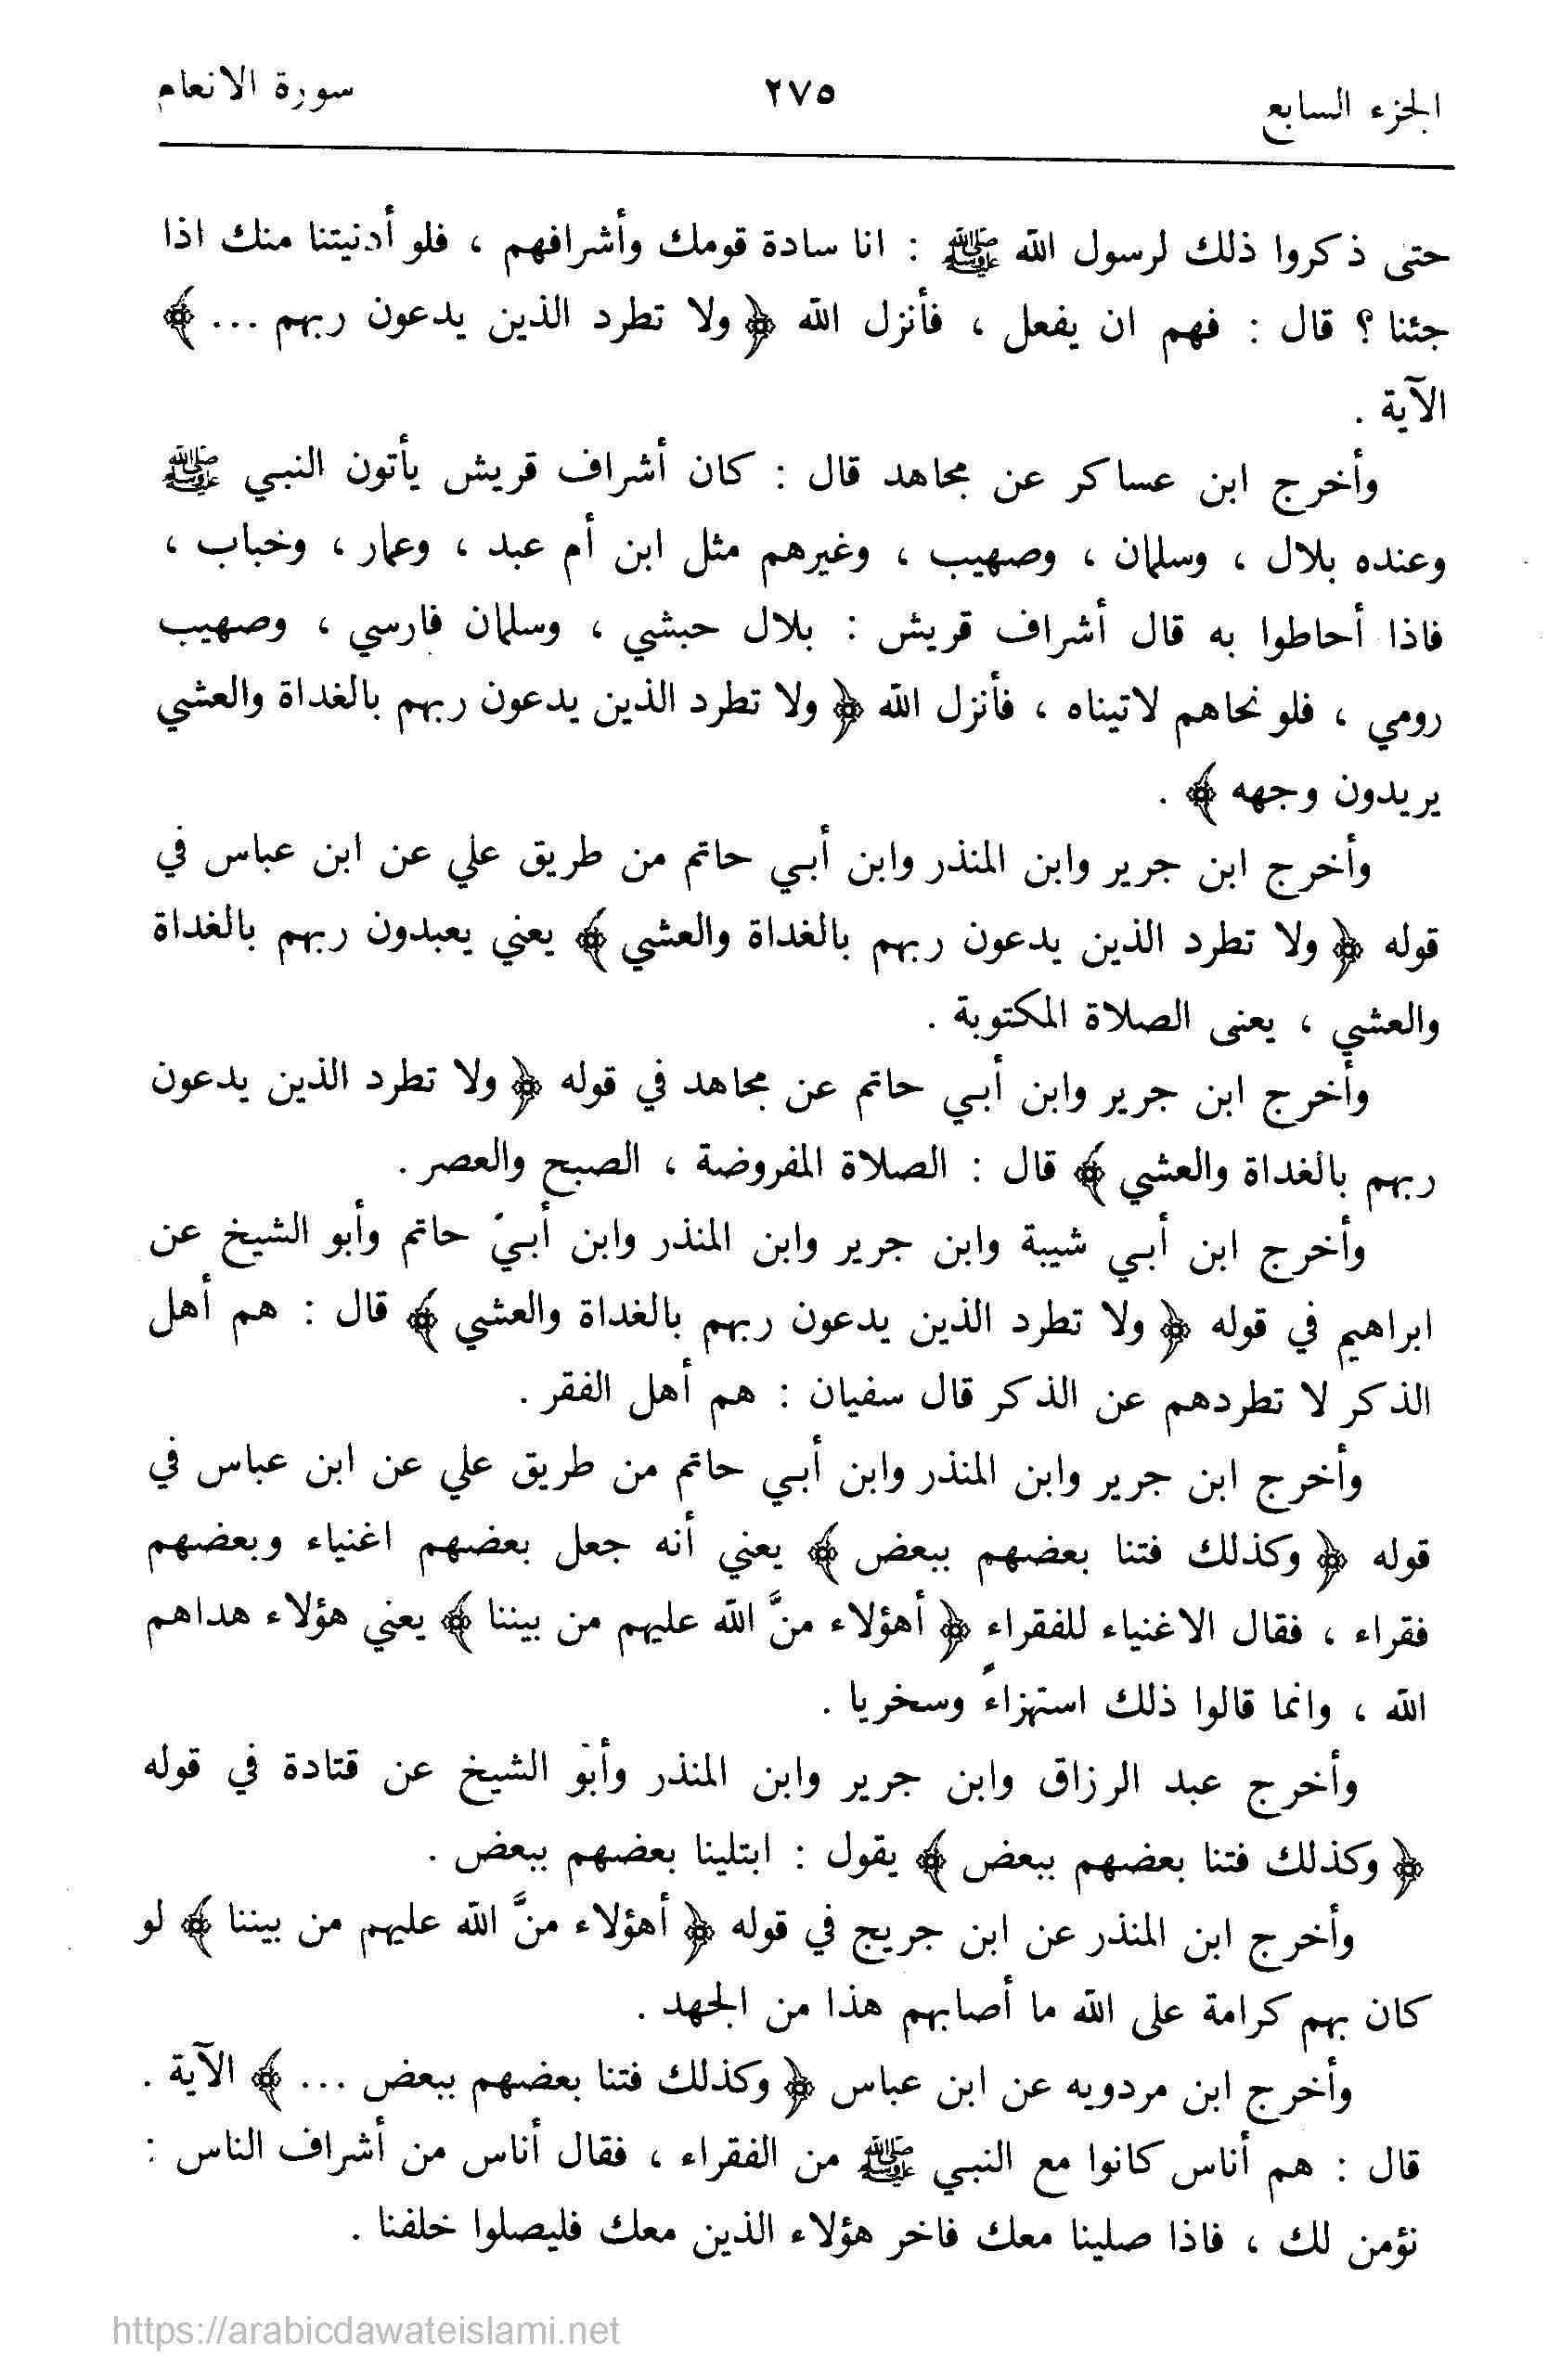 الجزء السابع ٢٧٥ سورة الانعام
حتى ذكروا ذلك لرسول الله ﷺ : انا سادة قومك وأشرافهم ، فلو أدنيتنا منك اذا
جئنا ؟ قال : فهم ان يفعل ، فأنزل الله ﴿ ولا تطرد الذين يدعون ربهم ... ﴾
الآية .
وأخرج ابن عساكر عن مجاهد قال : كان أشراف قريش يأتون النبي ﷺ
وعنده بلال ، وسلمان ، وصهيب ، وغيرهم مثل ابن أم عبد ، وعمار ، وخباب ،
فاذا أحاطوا به قال أشراف قريش : بلال حبشي ، وسلمان فارسي ، وصهيب
رومي ، فلو نحاهم لاتيناه ، فأنزل الله ﴿ ولا تطرد الذين يدعون ربهم بالغداة والعشي
يريدون وجهه ﴾ .
وأخرج ابن جرير وابن المنذر وابن أبي حاتم من طريق علي عن ابن عباس في
قوله ﴿ ولا تطرد الذين يدعون ربهم بالغداة والعشي ﴾ يعني يعبدون ربهم بالغداة
والعشي ، يعنى الصلاة المكتوبة .
وأخرج ابن جرير وابن أبي حاتم عن مجاهد في قوله ﴿ ولا تطرد الذين يدعون
ربهم بالغداة والعشي ﴾ قال : الصلاة المفروضة ، الصبح والعصر .
وأخرج ابن أبي شيبة وابن جرير وابن المنذر وابن أبي حاتم وأبو الشيخ عن
ابراهيم في قوله ﴿ ولا تطرد الذين يدعون ربهم بالغداة والعشي ﴾ قال : هم أهل
الذكر لا تطردهم عن الذكر قال سفيان : هم أهل الفقر .
وأخرج ابن جرير وابن المنذر وابن أبي حاتم من طريق علي عن ابن عباس في
قوله ﴿ وكذلك فتنا بعضهم ببعض ﴾ يعني أنه جعل بعضهم اغنياء وبعضهم
فقراء ، فقال الاغنياء للفقراء ﴿ أهؤلاء منَّ الله عليهم من بيننا ﴾ يعني هؤلاء هداهم
الله ، وانما قالوا ذلك استهزاءً وسخريا .
وأخرج عبد الرزاق وابن جرير وابن المنذر وأبو الشيخ عن قتادة في قوله
﴿ وكذلك فتنا بعضهم ببعض ﴾ يقول : ابتلينا بعضهم ببعض .
وأخرج ابن المنذر عن ابن جريج في قوله ﴿ أهؤلاء منَّ الله عليهم من بيننا ﴾ لو
كان بهم كرامة على الله ما أصابهم هذا من الجهد .
وأخرج ابن مردويه عن ابن عباس ﴿ وكذلك فتنا بعضهم ببعض ... ﴾ الآية .
قال : هم أناس كانوا مع النبي ﷺ من الفقراء ، فقال أناس من أشراف الناس :
نؤمن لك ، فاذا صلينا معك فاخر هؤلاء الذين معك فليصلوا خلفنا .
https://arabicdawateislami.net